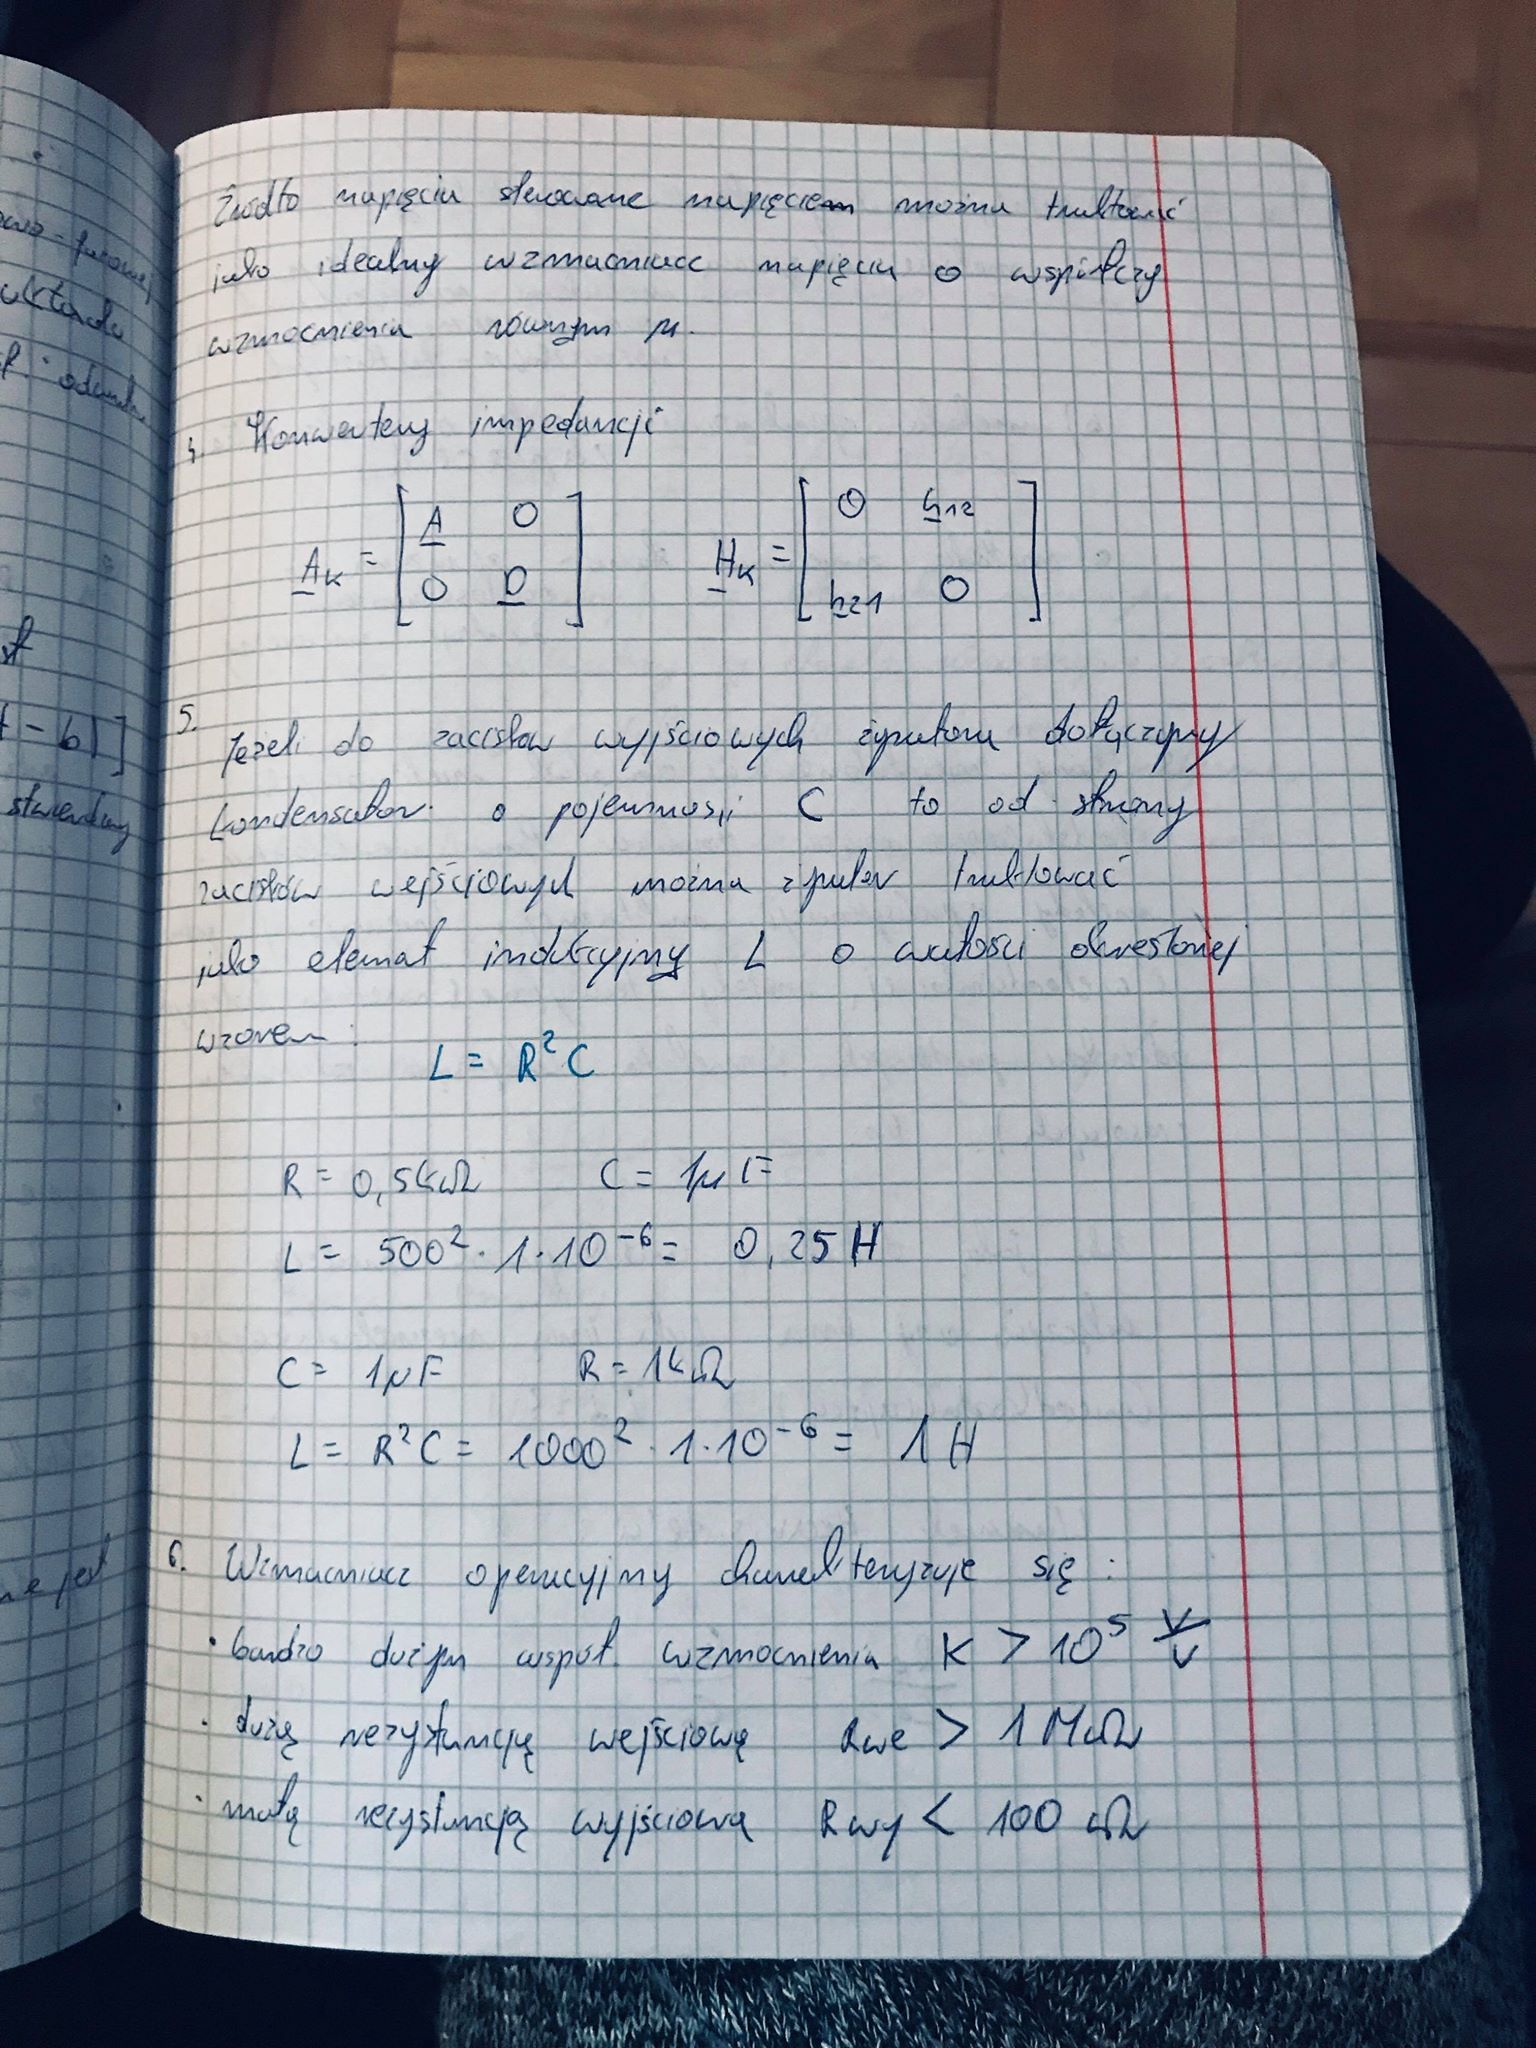 Źródło napięcia sterowane napięciem można traktować
jako idealny wzmacniacz napięcia o współczy
wzmocnienia równym μ.
4. Konwertery impedancji
A̲K = [ A̲ 0 ; 0 D̲ ] H̲K = [ 0 h̲12 ; h̲21 0 ]
5. Jeżeli do zacisków wyjściowych żyratora dołączymy
kondensator o pojemności C to od strony
zacisków wejściowych można żyrator traktować
jako element indukcyjny L o wartości określonej
wzorem:
L = R²C
R = 0,5kΩ C = 1μF
L = 500² · 1 · 10⁻⁶ = 0,25 H
C = 1μF R = 1kΩ
L = R²C = 1000² · 1 · 10⁻⁶ = 1 H
6. Wzmacniacz operacyjny charakteryzuje się:
• bardzo dużym współ. wzmocnienia K > 10⁵ V/V
• dużą rezystancją wejściową Rwe > 1 MΩ
• małą rezystancją wyjściową Rwy < 100 Ω
układu
t - b)]